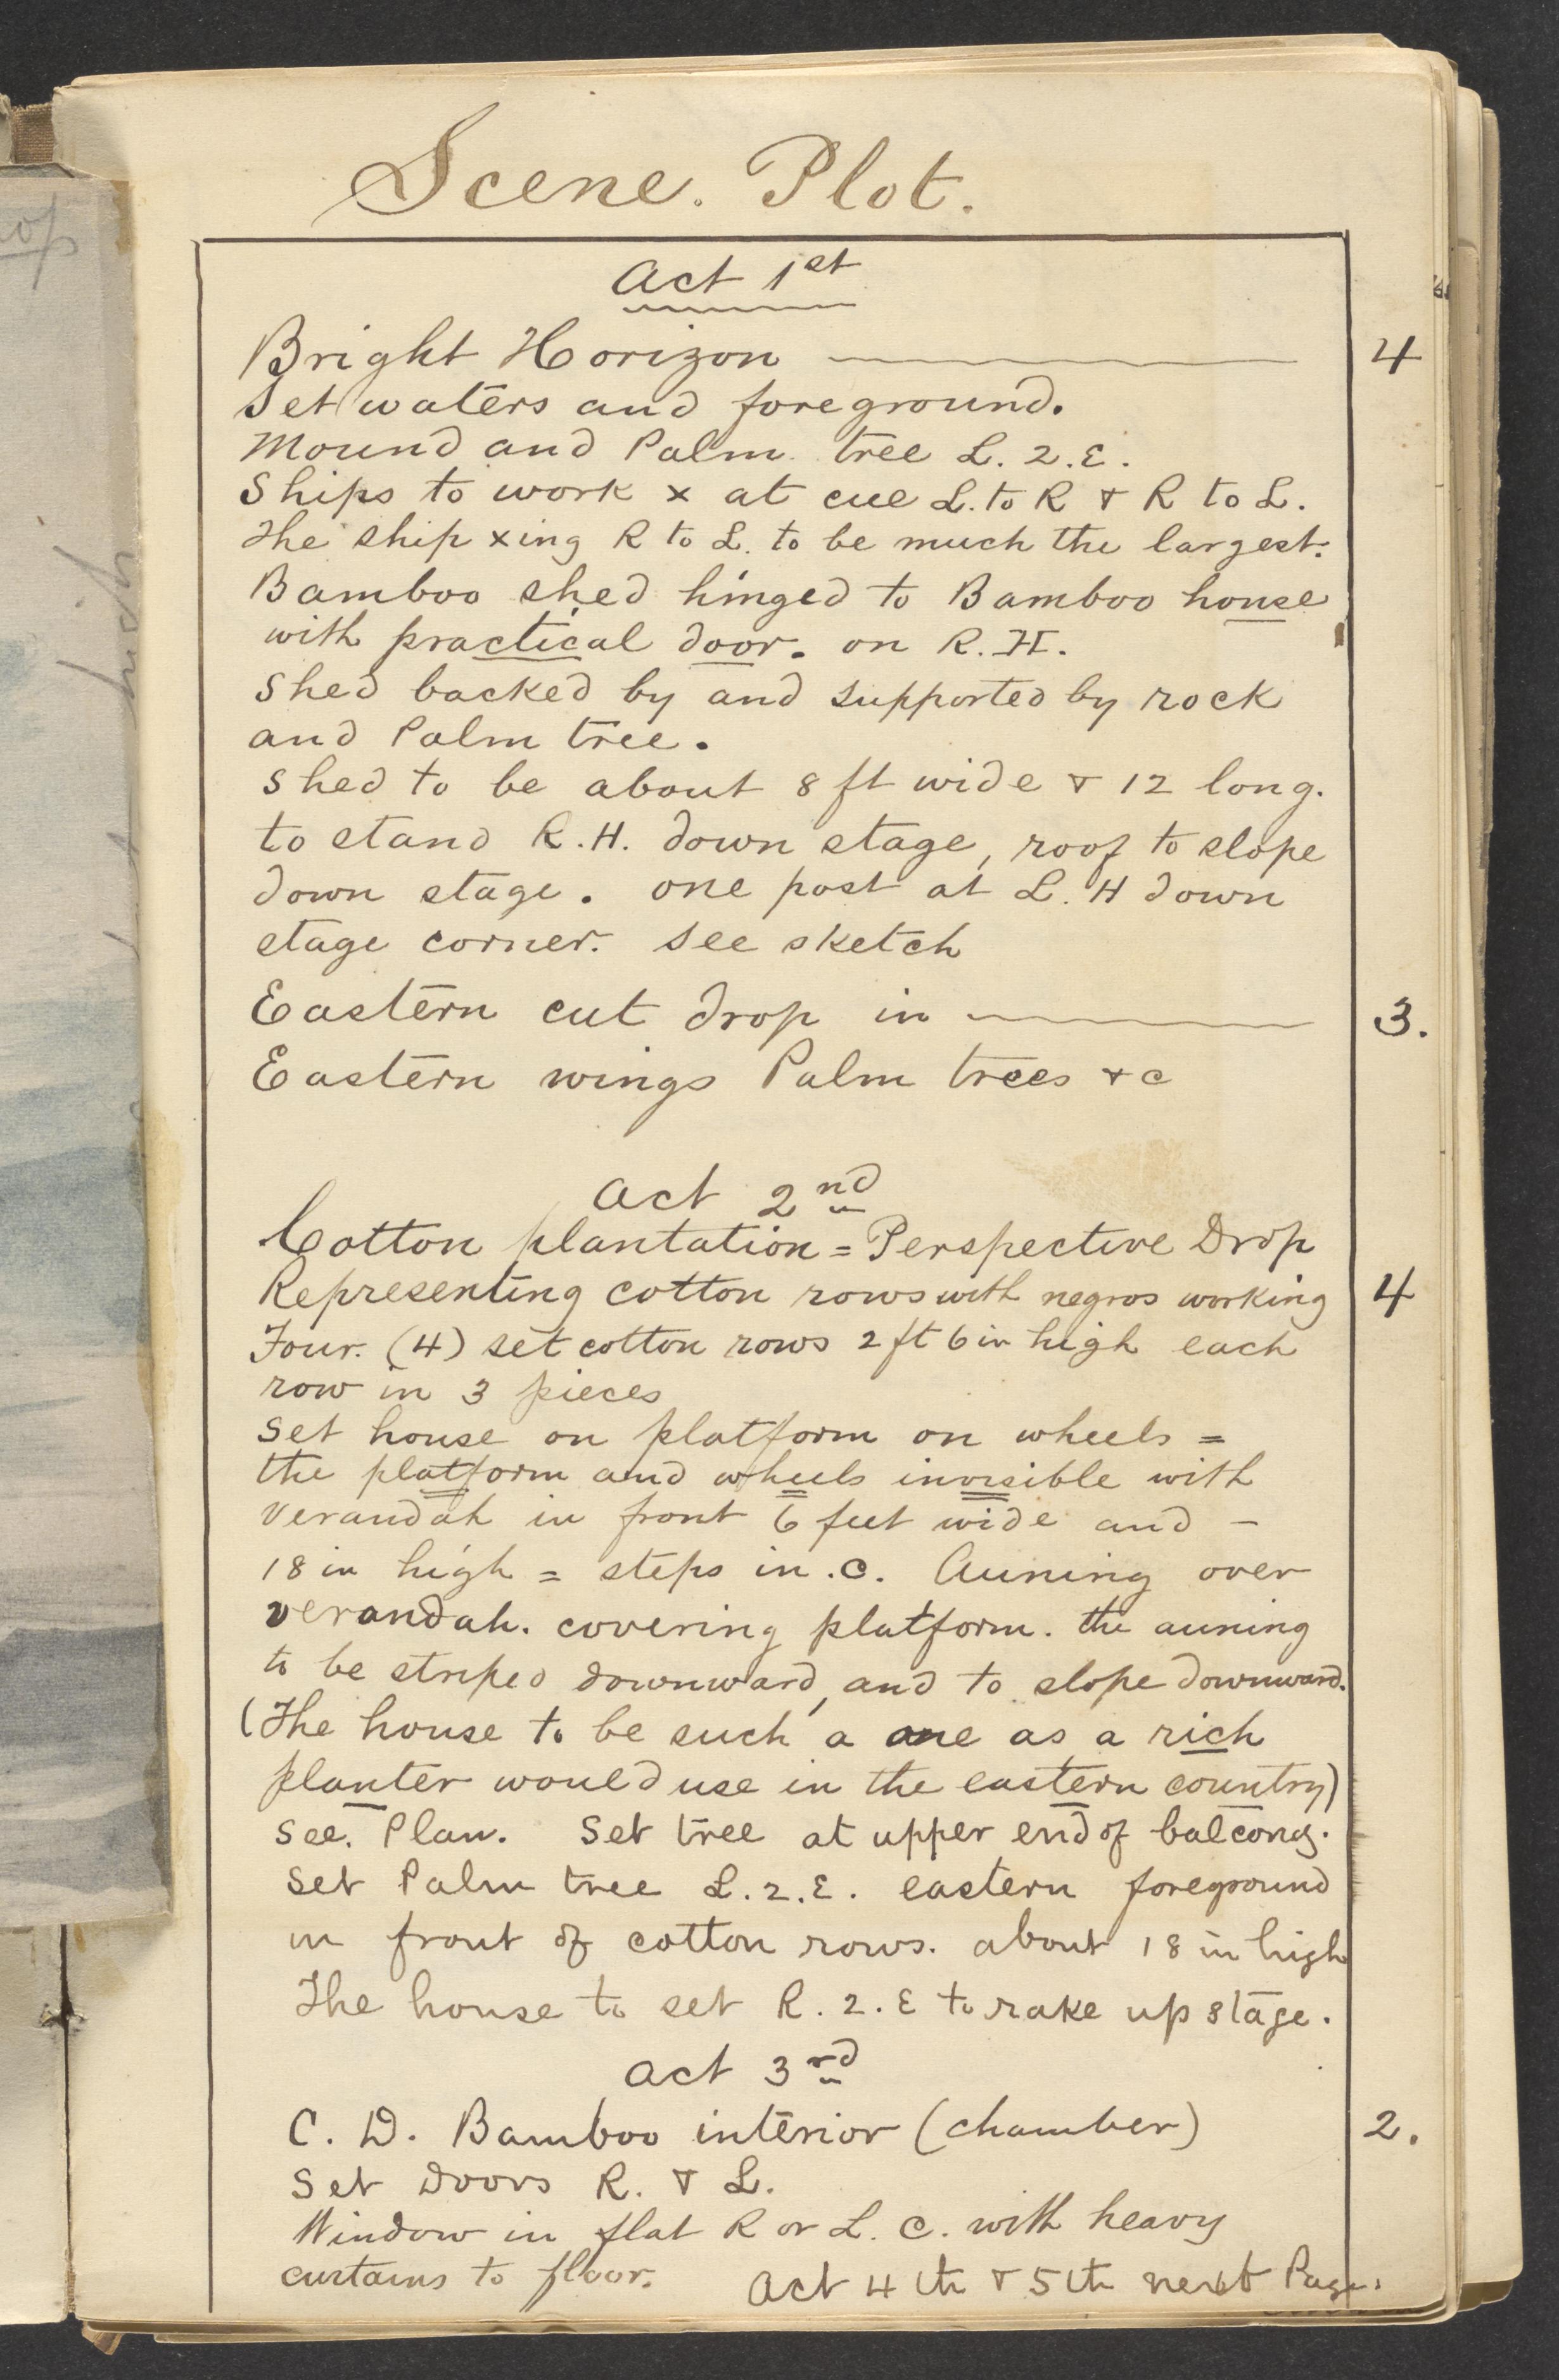 Scene. Plot.
Act 1st
Bright Horizon 4
Set waters and foreground.
Mound and Palm tree L. 2. E.
Ships to work x at cue L. to R & R to L.
The ship xing R to L. to be much the largest.
Bamboo shed hinged to Bamboo house
with practical door. on R. H.
Shed backed by and supported by rock
and Palm tree.
Shed to be about 8 ft wide & 12 long.
to stand R. H. down stage, roof to slope
down stage. one post at L. H down
stage corner. See sketch
Eastern cut drop in 3.
Eastern wings Palm trees & c
Act 2nd
Cotton plantation = Perspective Drop
Representing cotton rows with negros working 4
Four. (4) set cotton rows 2 ft 6 in high each
row in 3 pieces
Set house on platform on wheels =
the platform and wheels invisible with
verandah in front 6 feet wide and -
18 in high = steps in . C. Auning over
verandah. covering platform. the auning
to be striped downward, and to slope downward.
(The house to be such a one as a rich
planter would use in the eastern country)
See. Plan. Set tree at upper end of balcony.
Set Palm tree L. 2. E. eastern foreground
in front of cotton rows. about 18 in high
The house to set R. 2. E to rake up stage.
Act 3rd
C. D. Bamboo interior (chamber) 2.
Set Doors R. & L.
Window in flat R or L. C. with heavy
curtains to floor. Act 4th & 5th next Page.
op